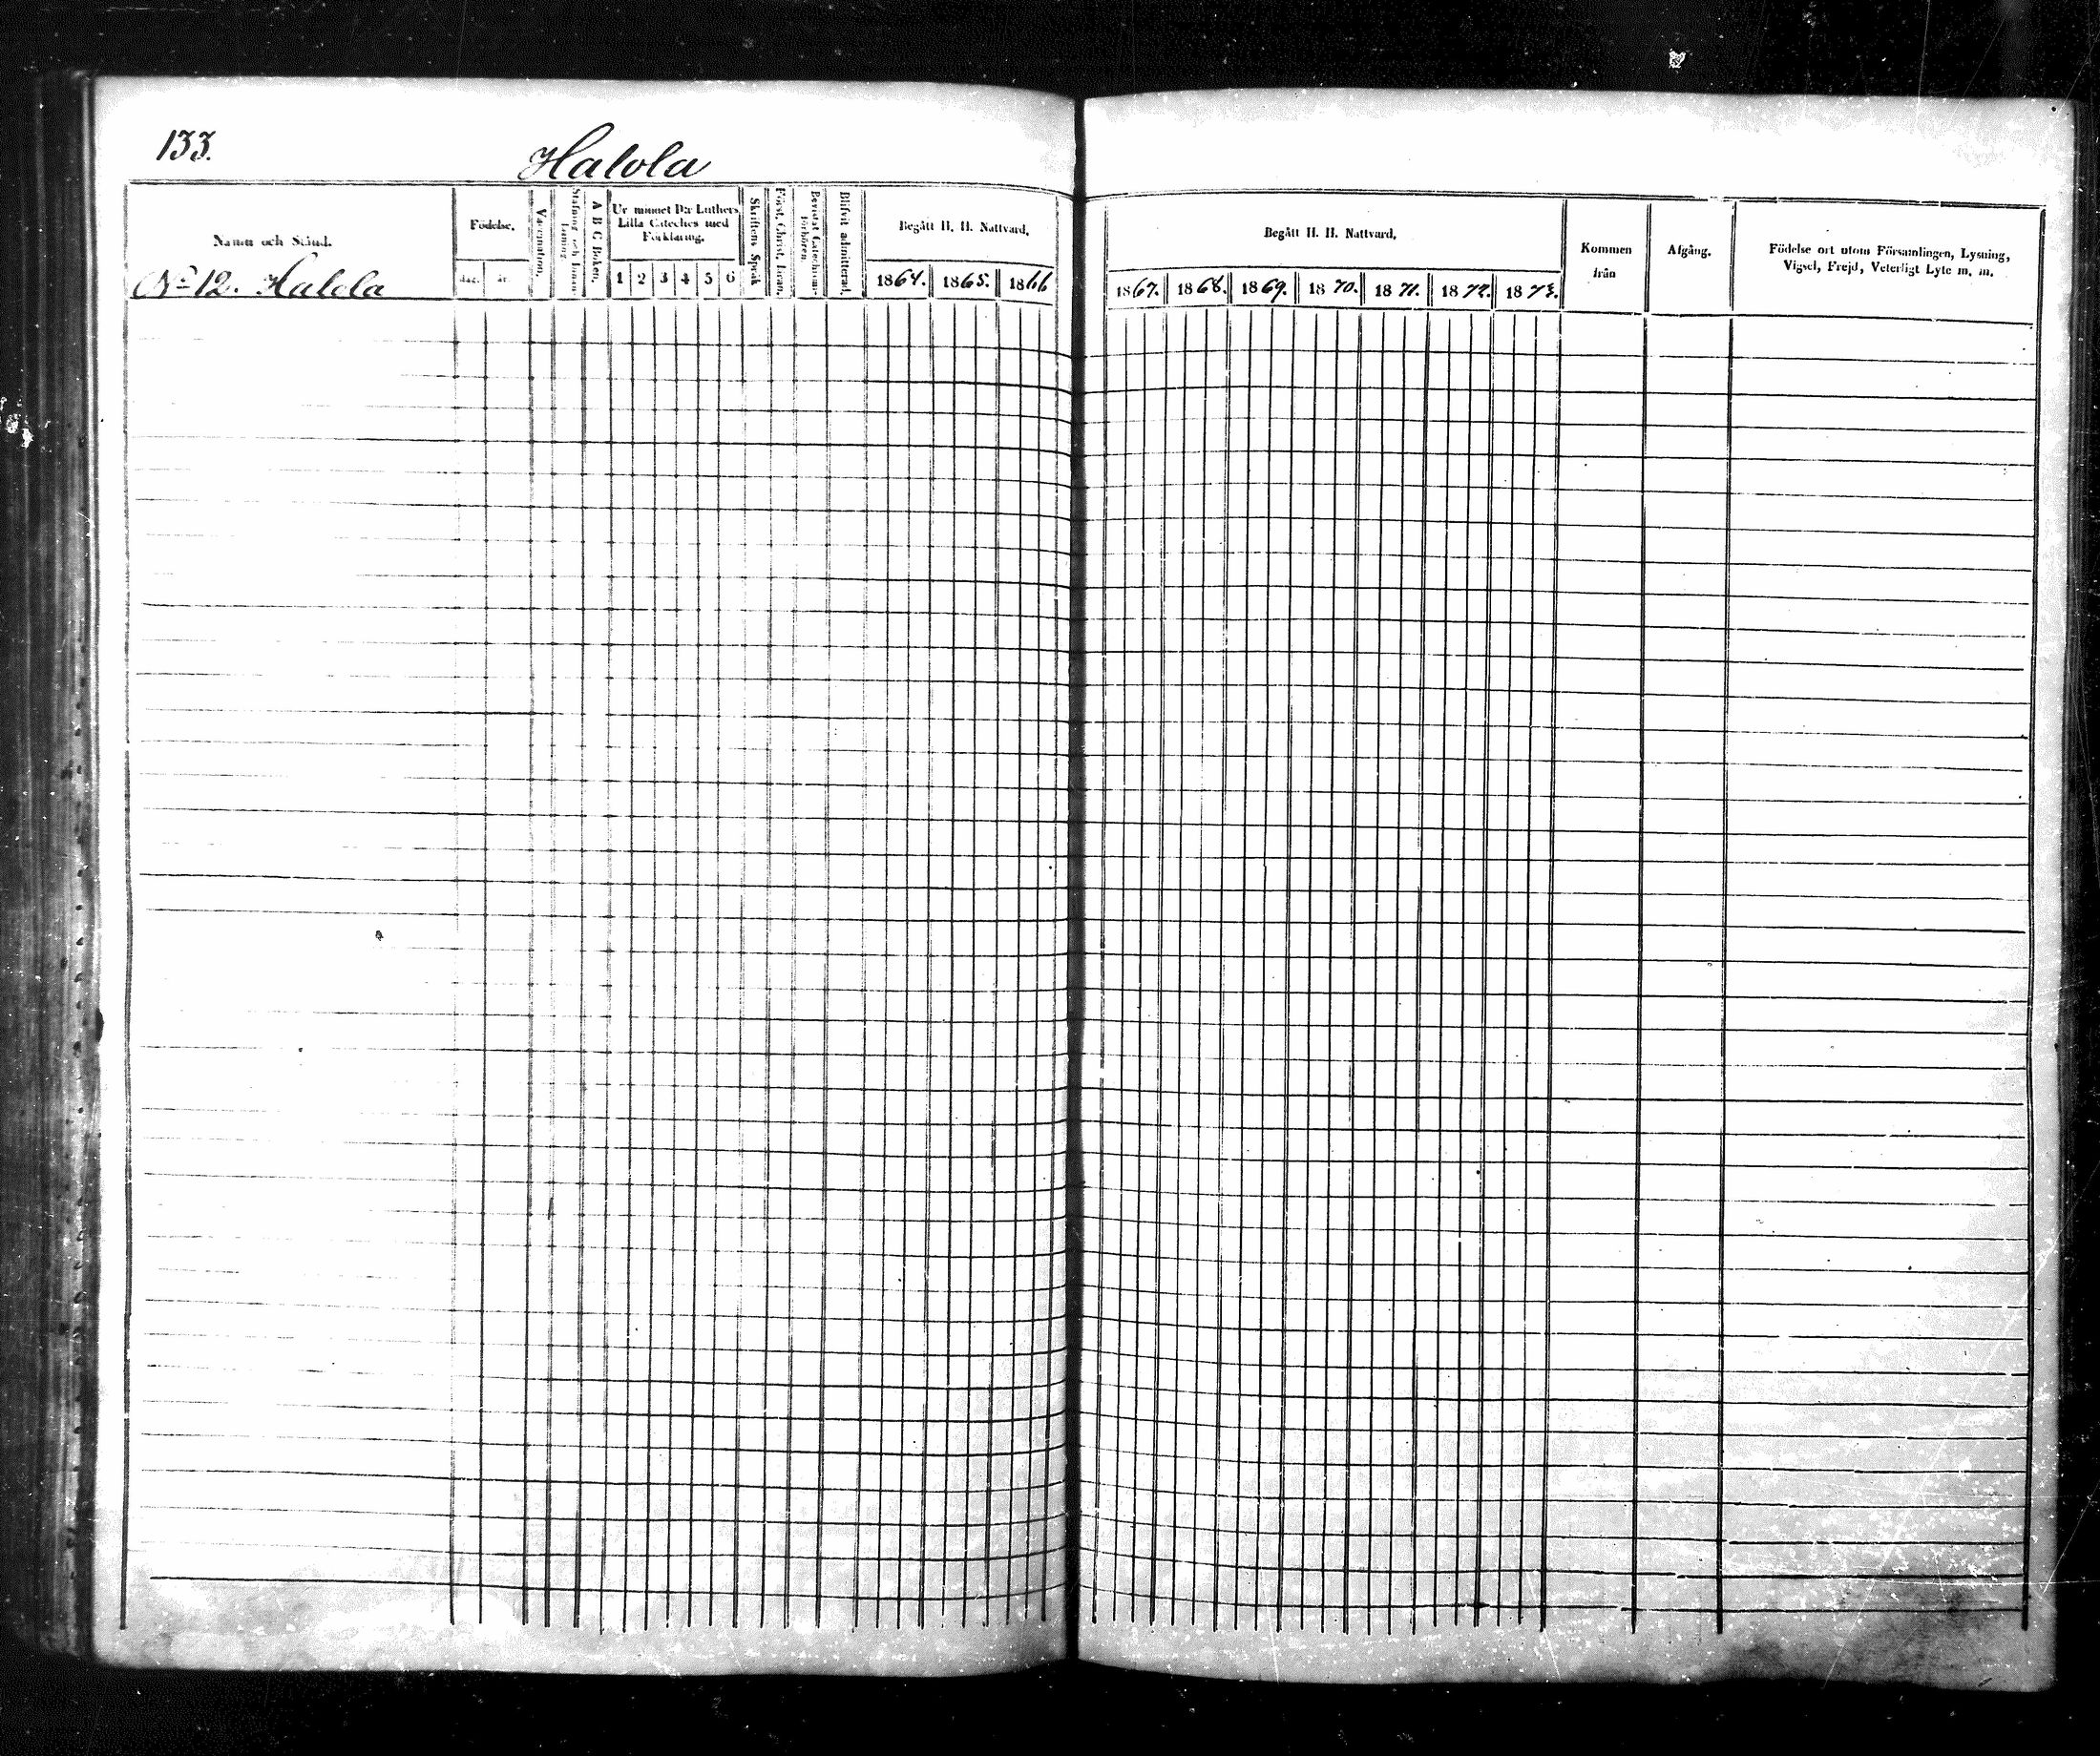 133.
Halola
Namn och Stånd.
No 12. Halola
Födelse.
dag. år.
Vaccination.
Stafning och Innan läsning
A B C Boken.
Ur minnet D:r Luthers
Lilla Cateches med
Förklaring.
1 2 3 4 5 6
Skriftens Språk
Först. Christ. Inan.
Bevistat Catechismi-
förhören
Blifvit admitterad.
Begått H. H. Nattvard.
1864. 1865. 1866
Begått H. H. Nattvard.
1867. 1868. 1869. 1870. 1871. 1872. 1873.
Kommen
från
Afgång.
Födelse ort utom Församlingen, Lysning,
Vigsel, Frejd, Veterligt Lyte m. m.